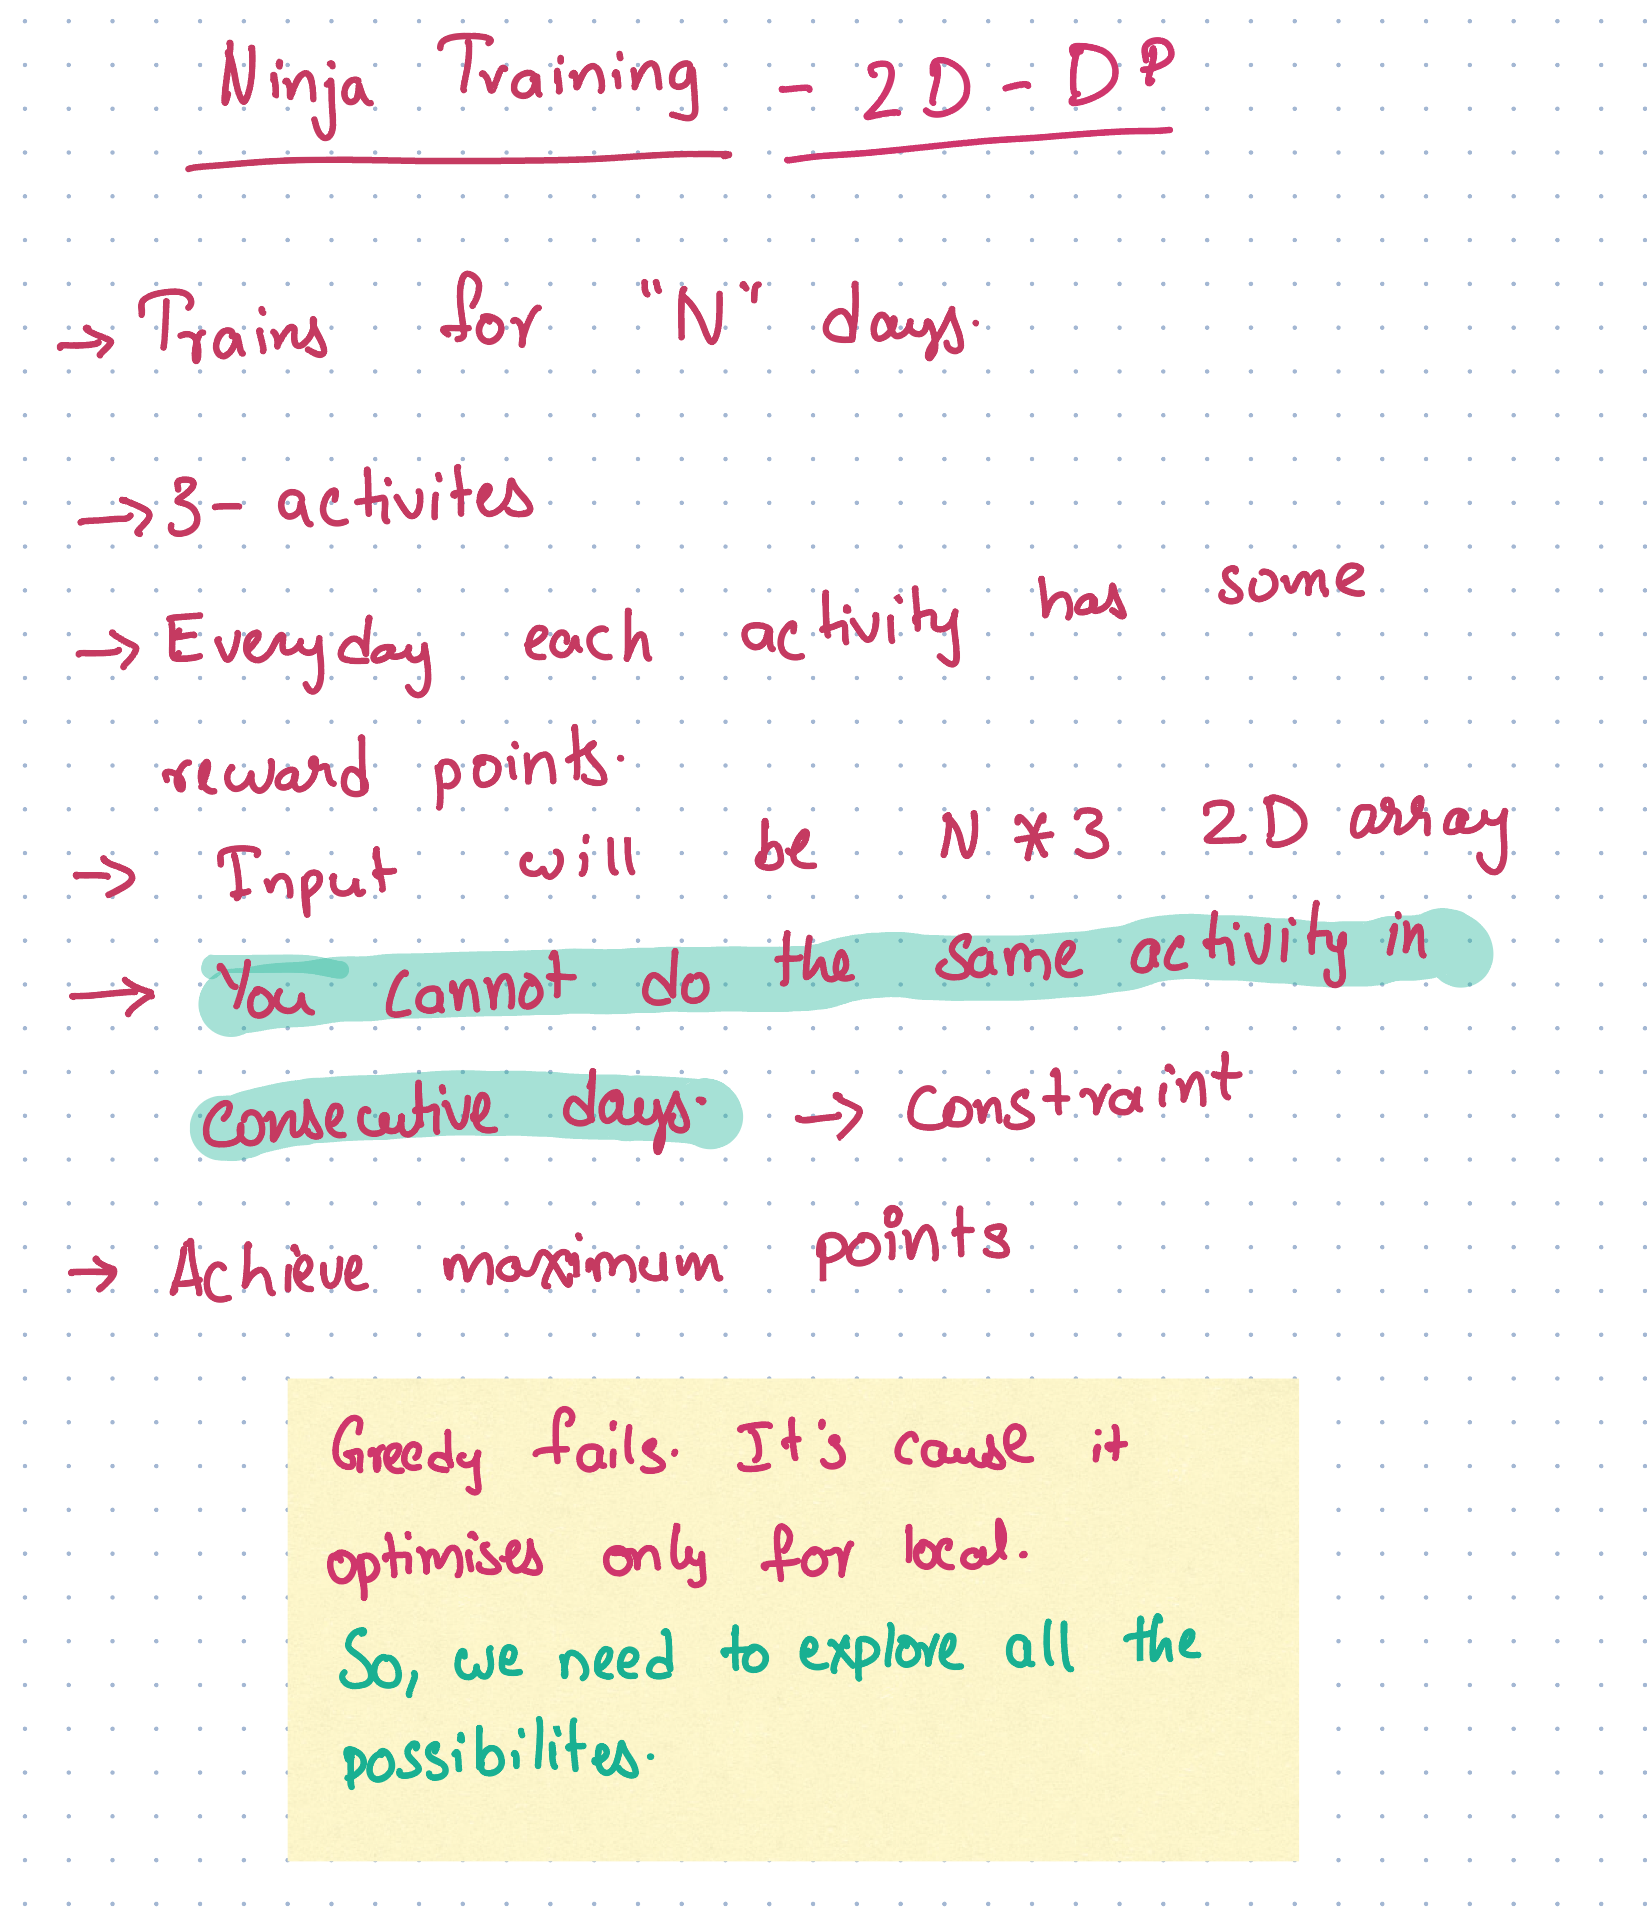 Ninja Training - 2D - DP
→ Trains for "N" days.
→ 3 - activites
→ Everyday each activity has some
reward points.
→ Input will be N * 3 2D array
→ You cannot do the same activity in
consecutive days. → Constraint
→ Achieve maximum points
Greedy fails. It's cause it
optimises only for local.
So, we need to explore all the
possibilites.